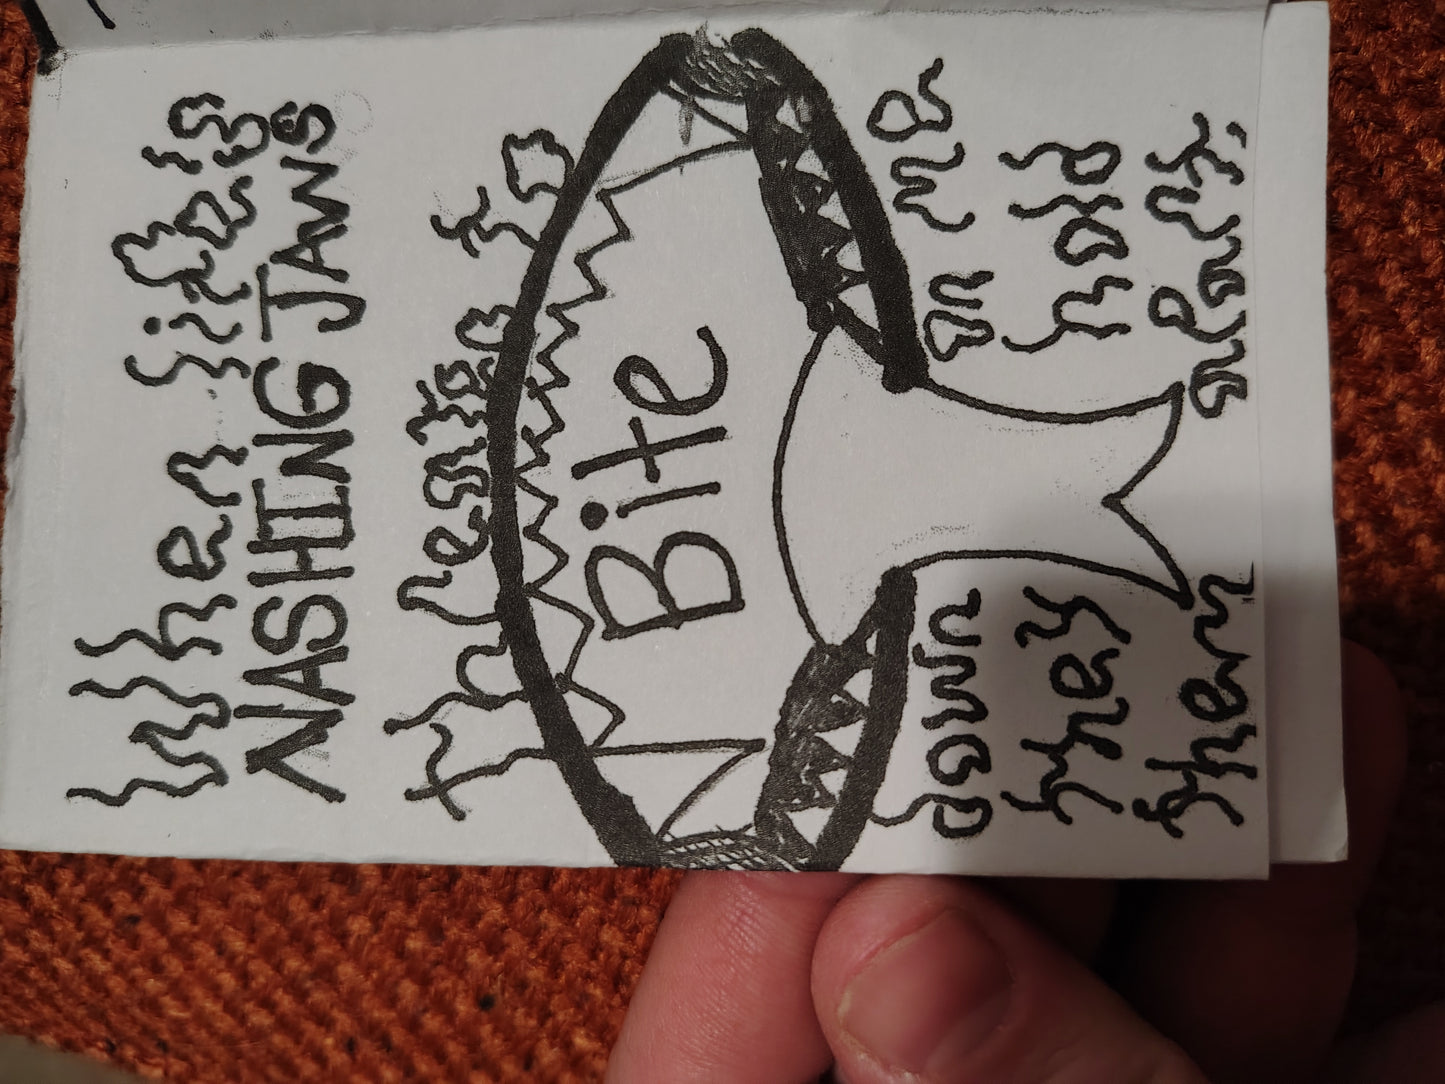 When life's
NASHING JAWS
threaten to
Bite
down on me
they hold
them apart.